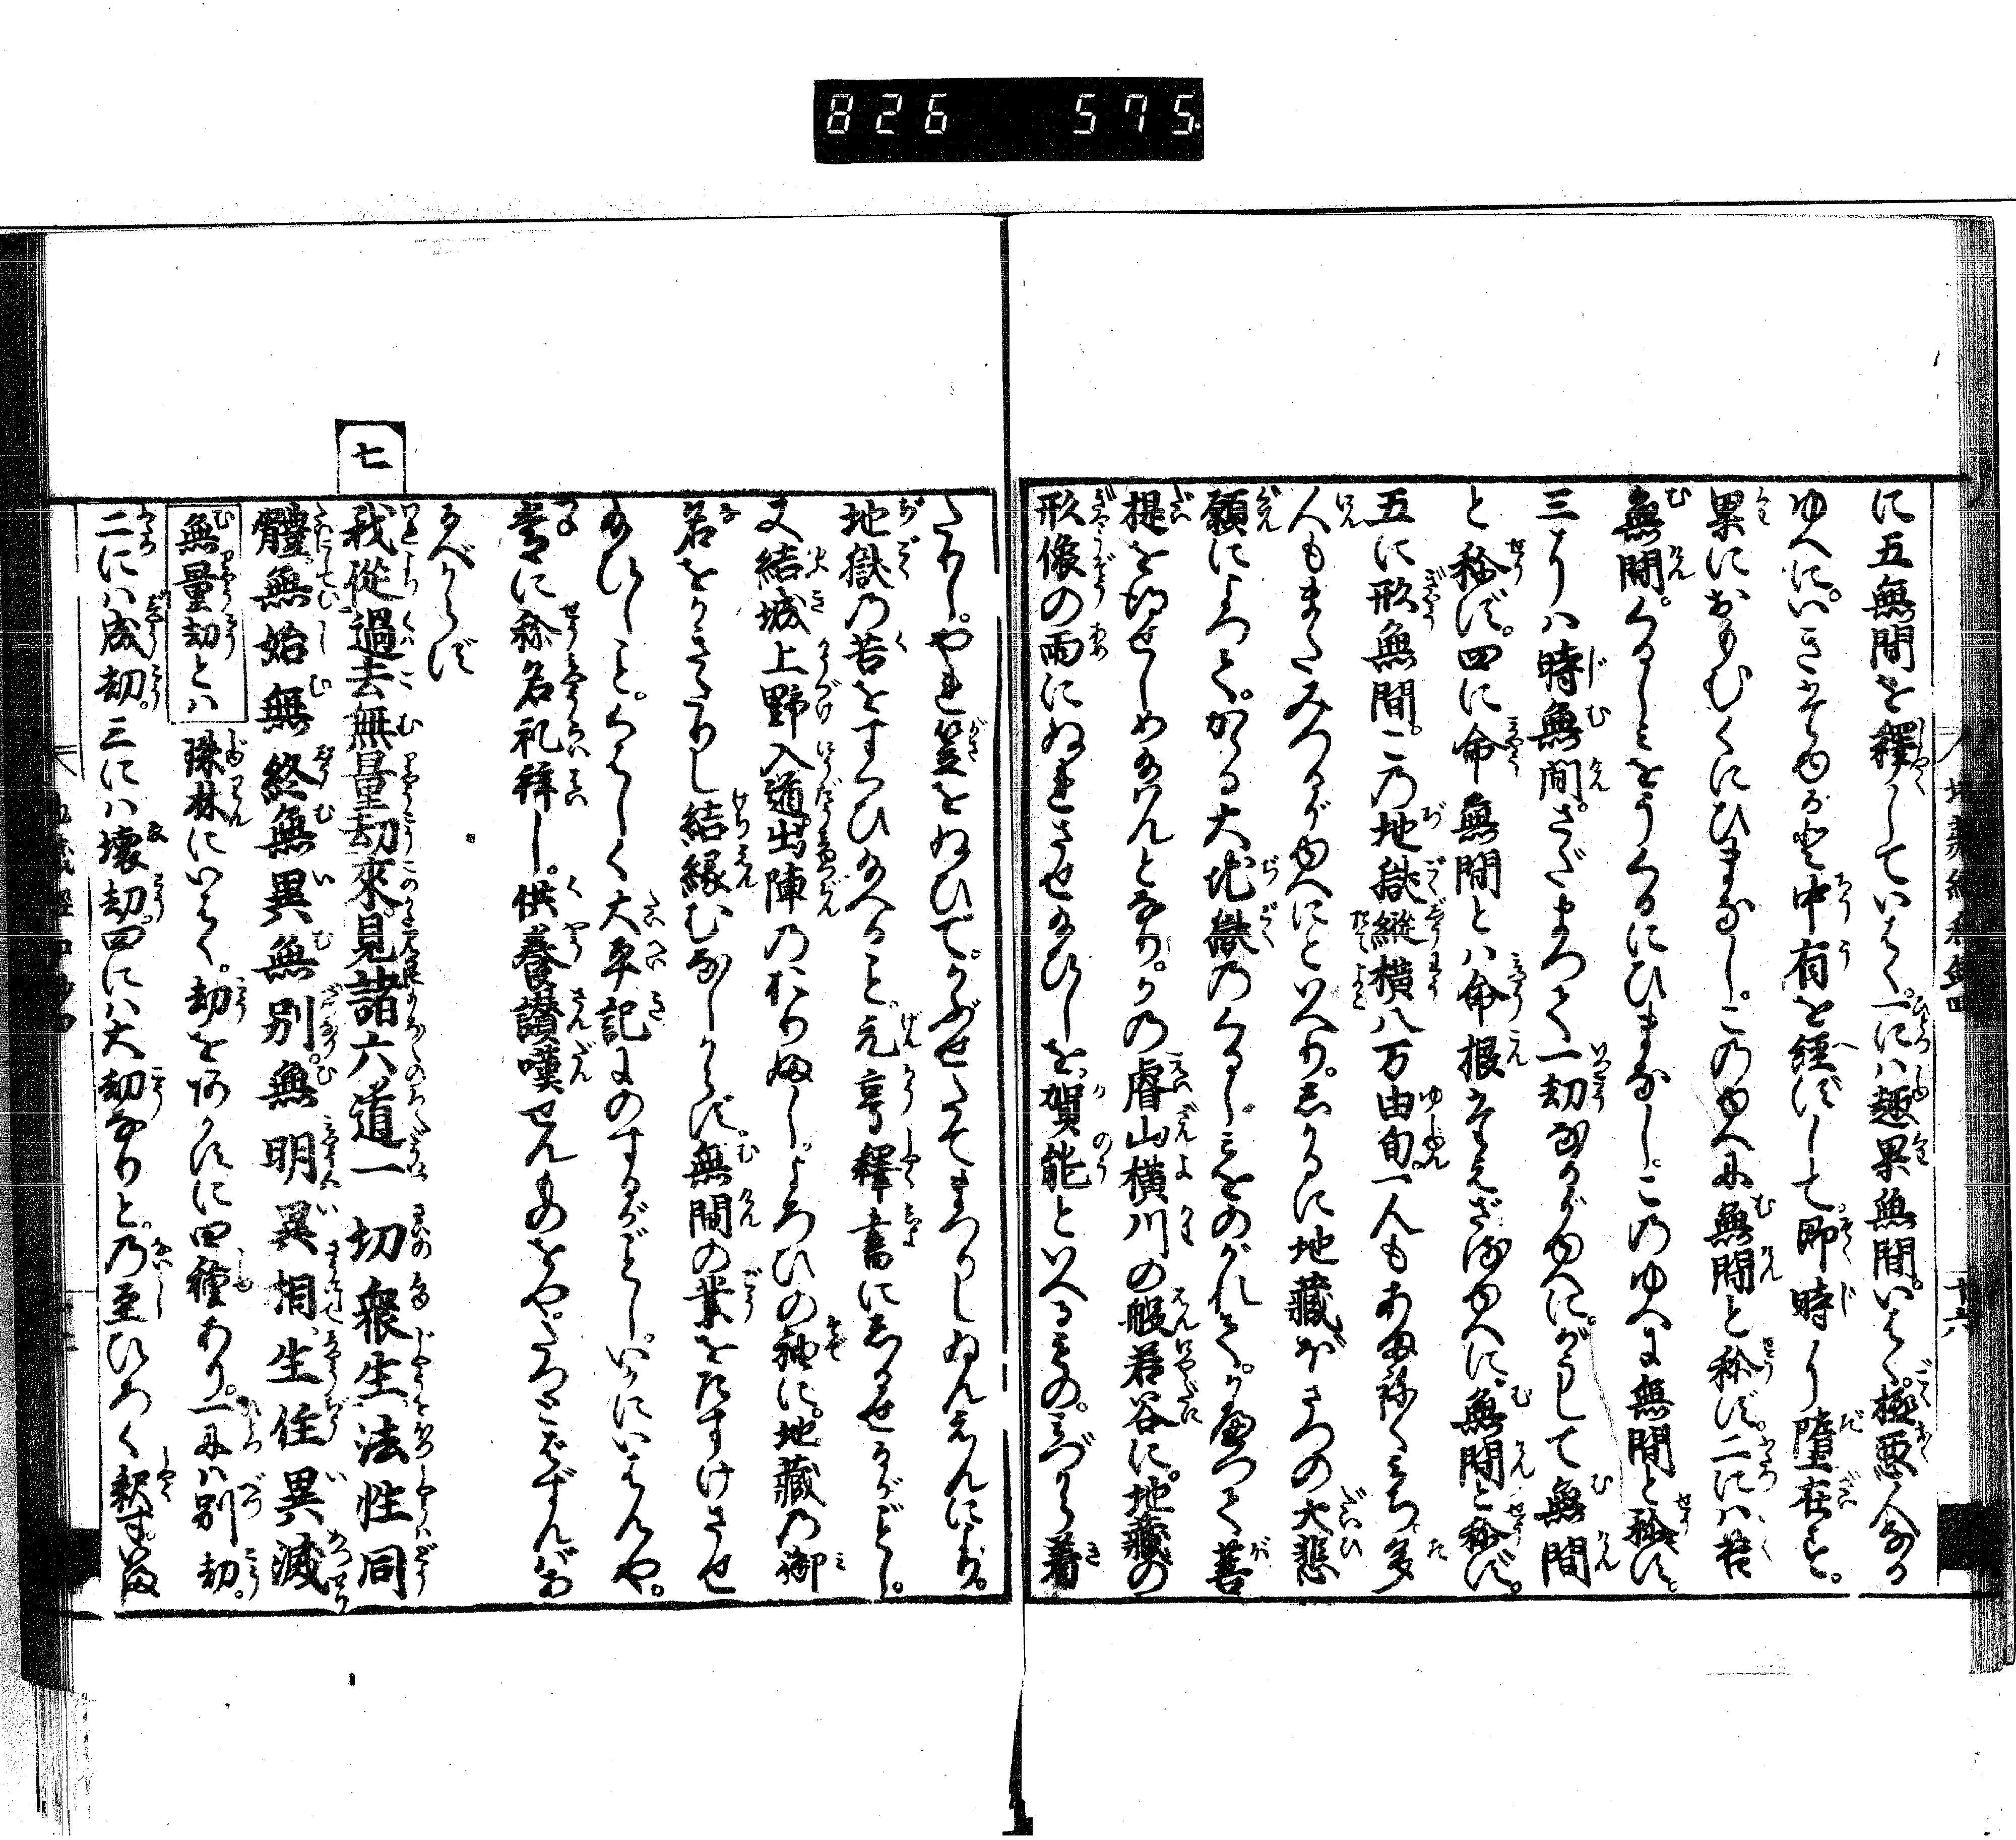 826 575
に五無間を釋していはく。一には趣果無間。いはく。極悪人なる
ゆへに。いきをはるがと中有を經ずして。即時に墮在す。
果におもむくにひまなし。このゆへに無間と称ず。二には苦
無間。くるしみをうくるにひまなし。このゆへに無間と称ず。
三には時無間。さだまつて一劫なるがゆへに。がうして無間
と称ず。四に命無間とは命根たえざるゆへに。無間と称ず。
五に形無間。この地獄縱横八万由旬。一人もあまねくみち。多
人もまたみつるがゆへにといへり。しかるに地藏ぼさつの大悲
願によつて。かゝる大地獄のくるしみをのがれて。かへつて菩
提を得せしめ給はんとなり。かの睿山横川の般若谷に。地藏の
形像の雨にぬれさせ給ひしを。賀能といへるもの。みづから着
たりし。やれ笠をぬひて。かぶせたてまつりしゐんえんにより。
地獄の苦をすくひ給へること。元亨釋書にしるせるがごとし。
又結城上野入道。出陣のおりふし。よろひの袖に。地藏の御
名をかきたりし結縁むなしからず。無間の業をたすけさせ
給ひしこと。くはしく大平記にのするがごとし。いかにいはんや。
常に称名礼拝し。供養讃嘆せんものをや。さらにぞんずべ
べからず
七
我從過去無量劫來。見諸六道一切衆生。法性同
體。無始無終無異無別。無明異相。生住異滅
無量劫とは 琢林にいはく。劫をあかすに四種あり。一には別劫。
二には成劫。三には壞劫。四には大劫なりと。乃至ひろく釈すは